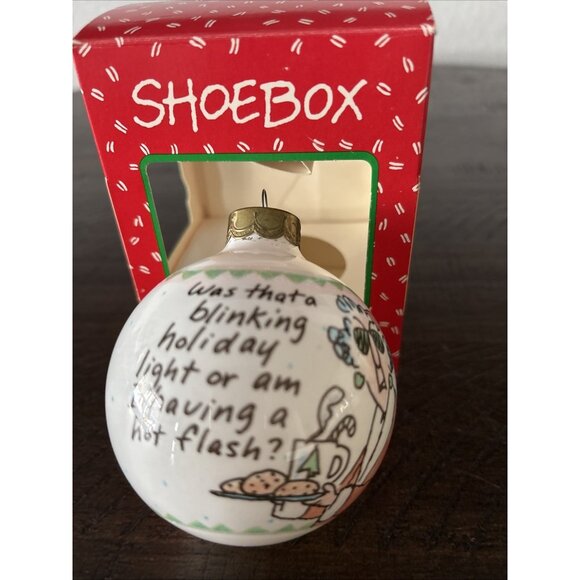 SHOEBOX
Was that a
blinking
holiday
light or am
I having a
hot flash?